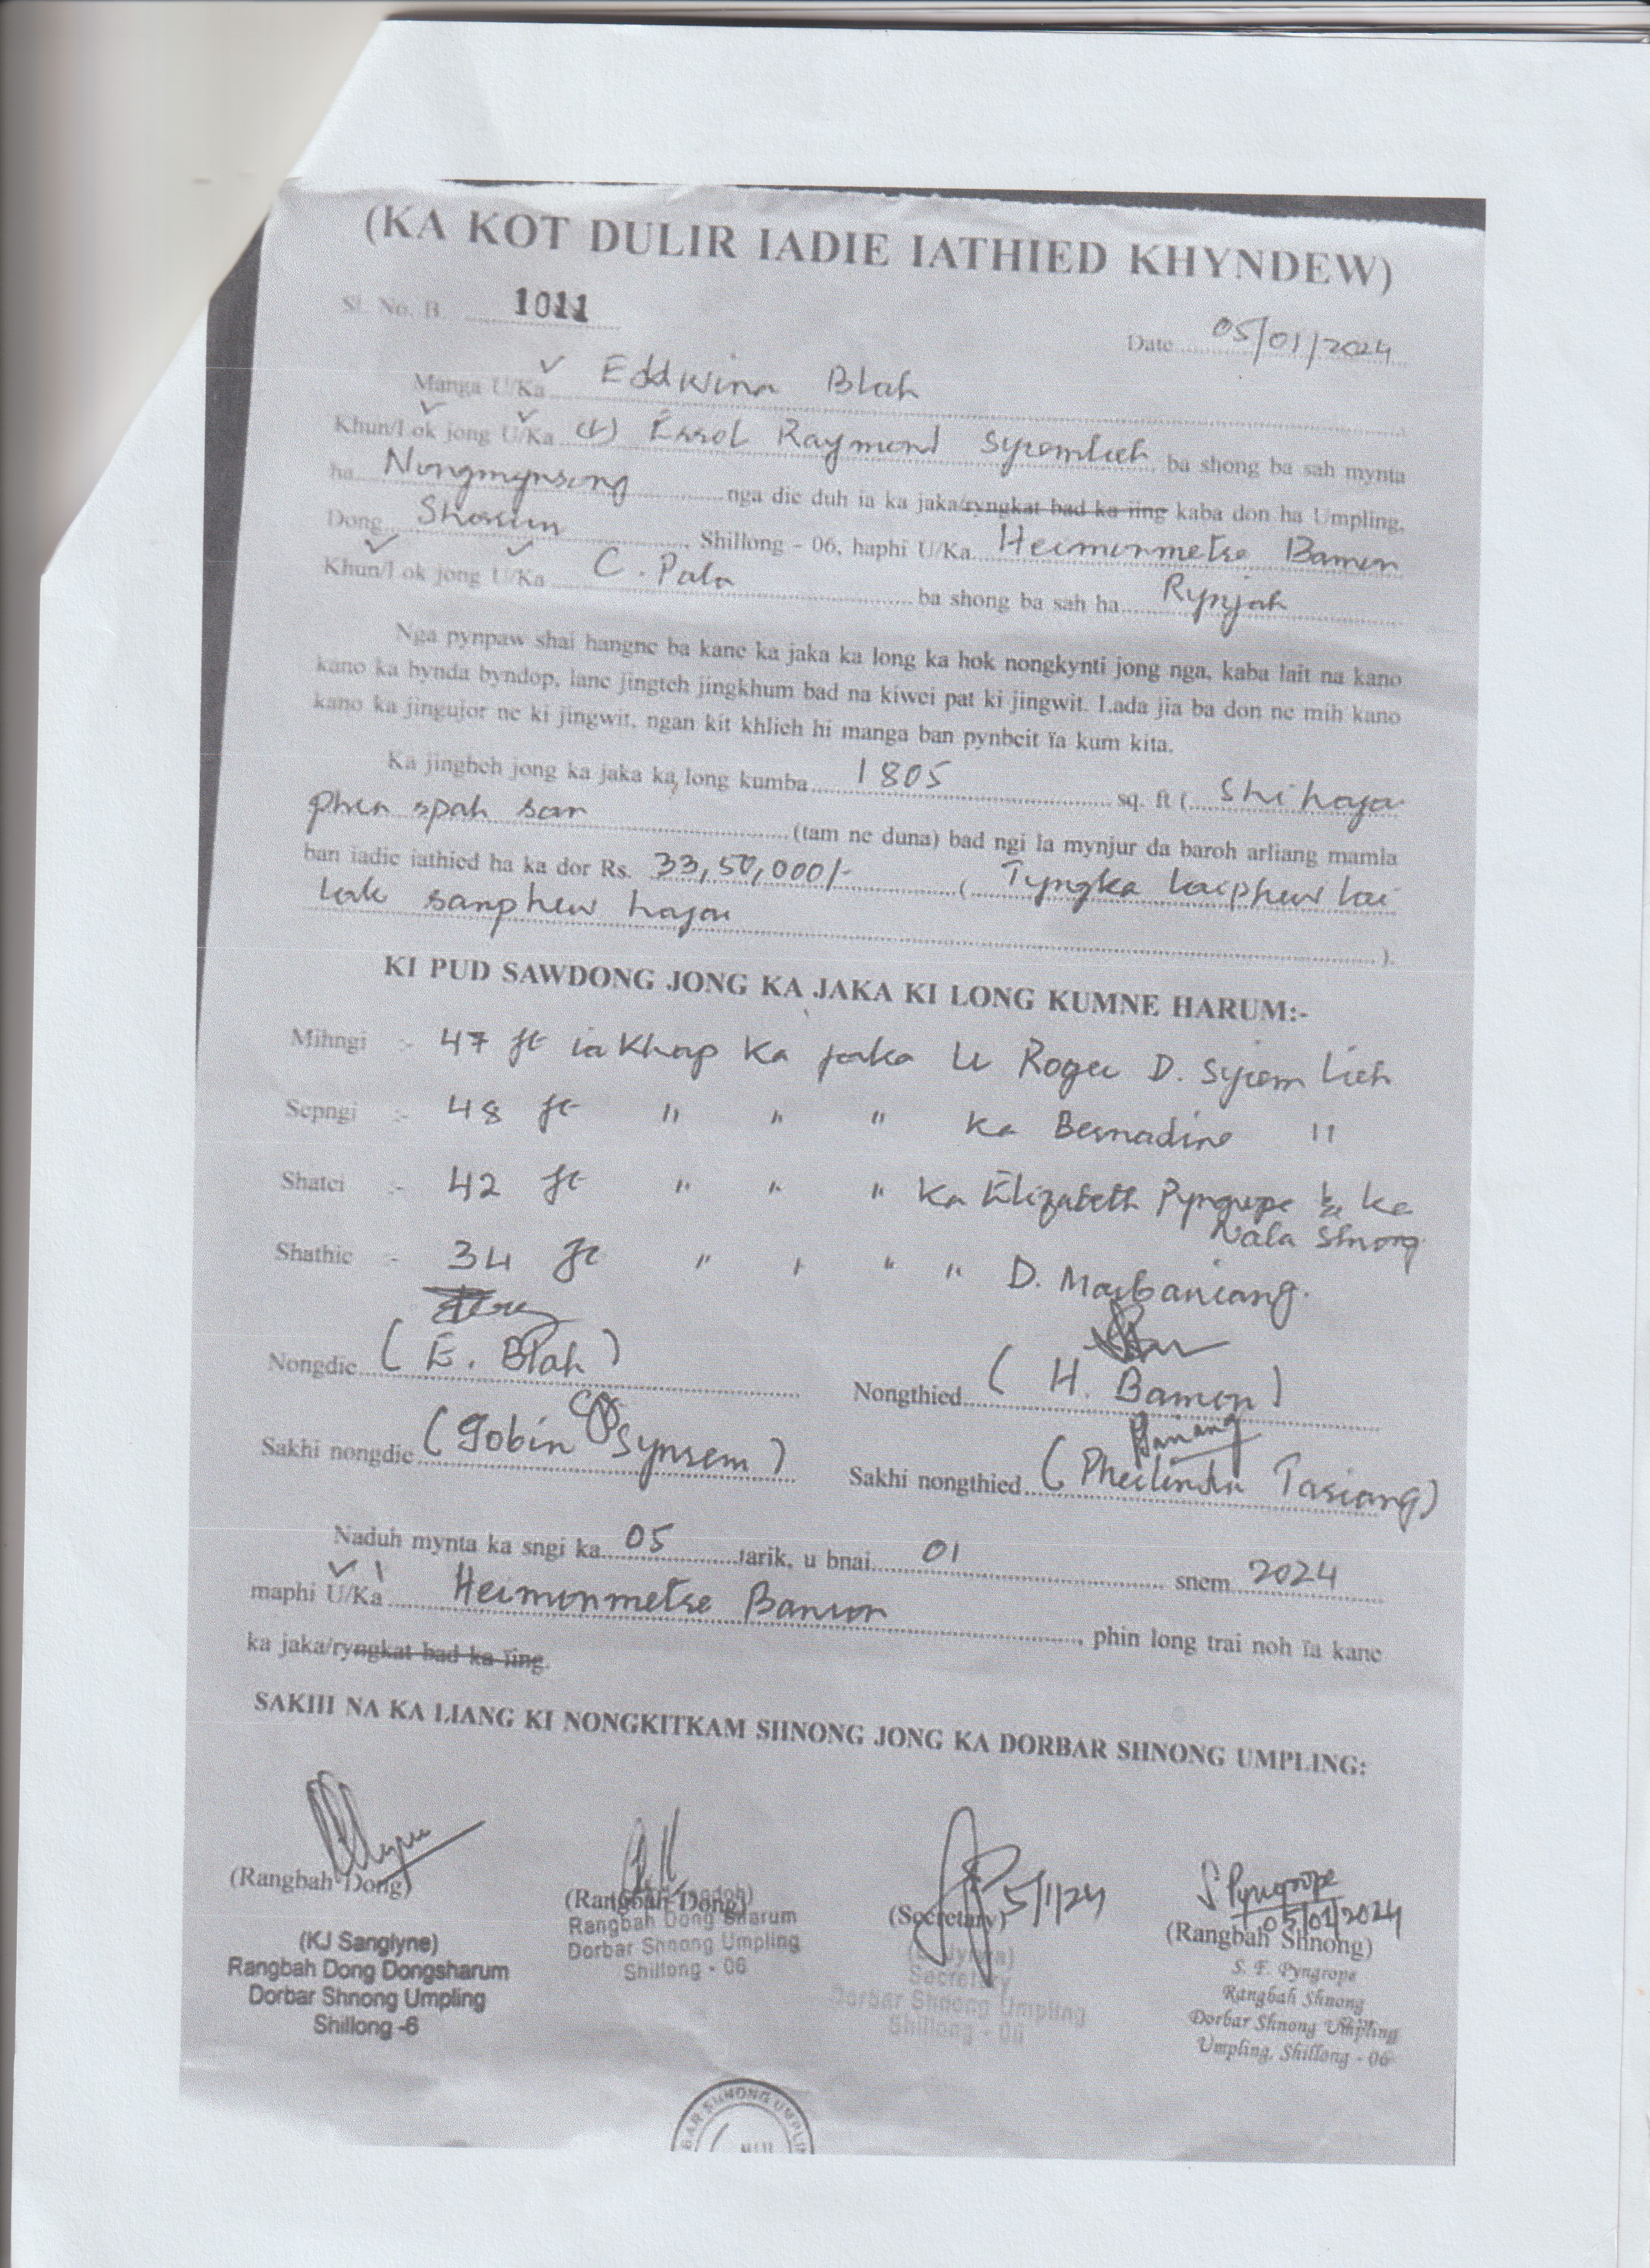 (KA KOT DULIR IADIE IATHIED KHYNDEW)
Sl. No. B. 1011
Date 05/01/2024
Manga U/Ka Eddwina Blah
Khun/Lok jong U/Ka (L) Essol Raymond Syiemlieh, ba shong ba sah mynta
ha Nongmynsong nga die duh ia ka jaka/ryngkat bad ka iing kaba don ha Umpling,
Dong Sharum, Shillong - 06, haphi U/Ka Heimonmetse Bamon
Khun/Lok jong U/Ka C. Pala ba shong ba sah ha Rynjah
Nga pynpaw shai hangne ba kane ka jaka ka long ka hok nongkynti jong nga, kaba lait na kano
kano ka bynda byndop, lane jingteh jingkhum bad na kiwei pat ki jingwit. Lada jia ba don ne mih kano
kano ka jingujor ne ki jingwit, ngan kit khlieh hi manga ban pynbeit ïa kum kita.
Ka jingheh jong ka jaka ka long kumba 1805 sq. ft ( Shi hajar
phra spah san (tam ne duna) bad ngi la mynjur da baroh arliang mamla
ban iadie iathied ha ka dor Rs. 33,50,000/- ( Tyngka laiphew lai
lak sanphew hajar ).
KI PUD SAWDONG JONG KA JAKA KI LONG KUMNE HARUM:-
Mihngi :- 47 ft ia khap ka jaka U Roger D. Syiem lieh
Sepngi :- 48 ft " " " ka Bernadine "
Shatei :- 42 ft " " " Ka Elizabeth Pyngrope & ka
Nala Shnong
Shathie :- 34 ft " " " " D. Marbaniang.
Nongdie (E. Blah)
Nongthied (H. Bamon)
Sakhi nongdie (Gobin Synrem)
Sakhi nongthied (Pheilinda Tariang)
Naduh mynta ka sngi ka 05 tarik, u bnai 01 snem 2024
maphi U/Ka Heimonmetse Bamon, phin long trai noh ïa kane
ka jaka/ryngkat bad ka ïing.
SAKHI NA KA LIANG KI NONGKITKAM SHNONG JONG KA DORBAR SHNONG UMPLING:
5/1/24
S Pyngrope
05/01/2024
(Rangbah Dong)
(Rangbah Dong)
(Secretary)
(Rangbah Shnong)
(KJ Sanglyne)
Rangbah Dong Dongsharum
Dorbar Shnong Umpling
Shillong -6
Rangbah Dong Sharum
Dorbar Shnong Umpling
Shillong - 06
Secretary
Dorbar Shnong Umpling
Shillong - 06
S. F. Pyngrope
Rangbah Shnong
Dorbar Shnong Umpling
Umpling, Shillong - 06
BAR SHNONG UMPLIN